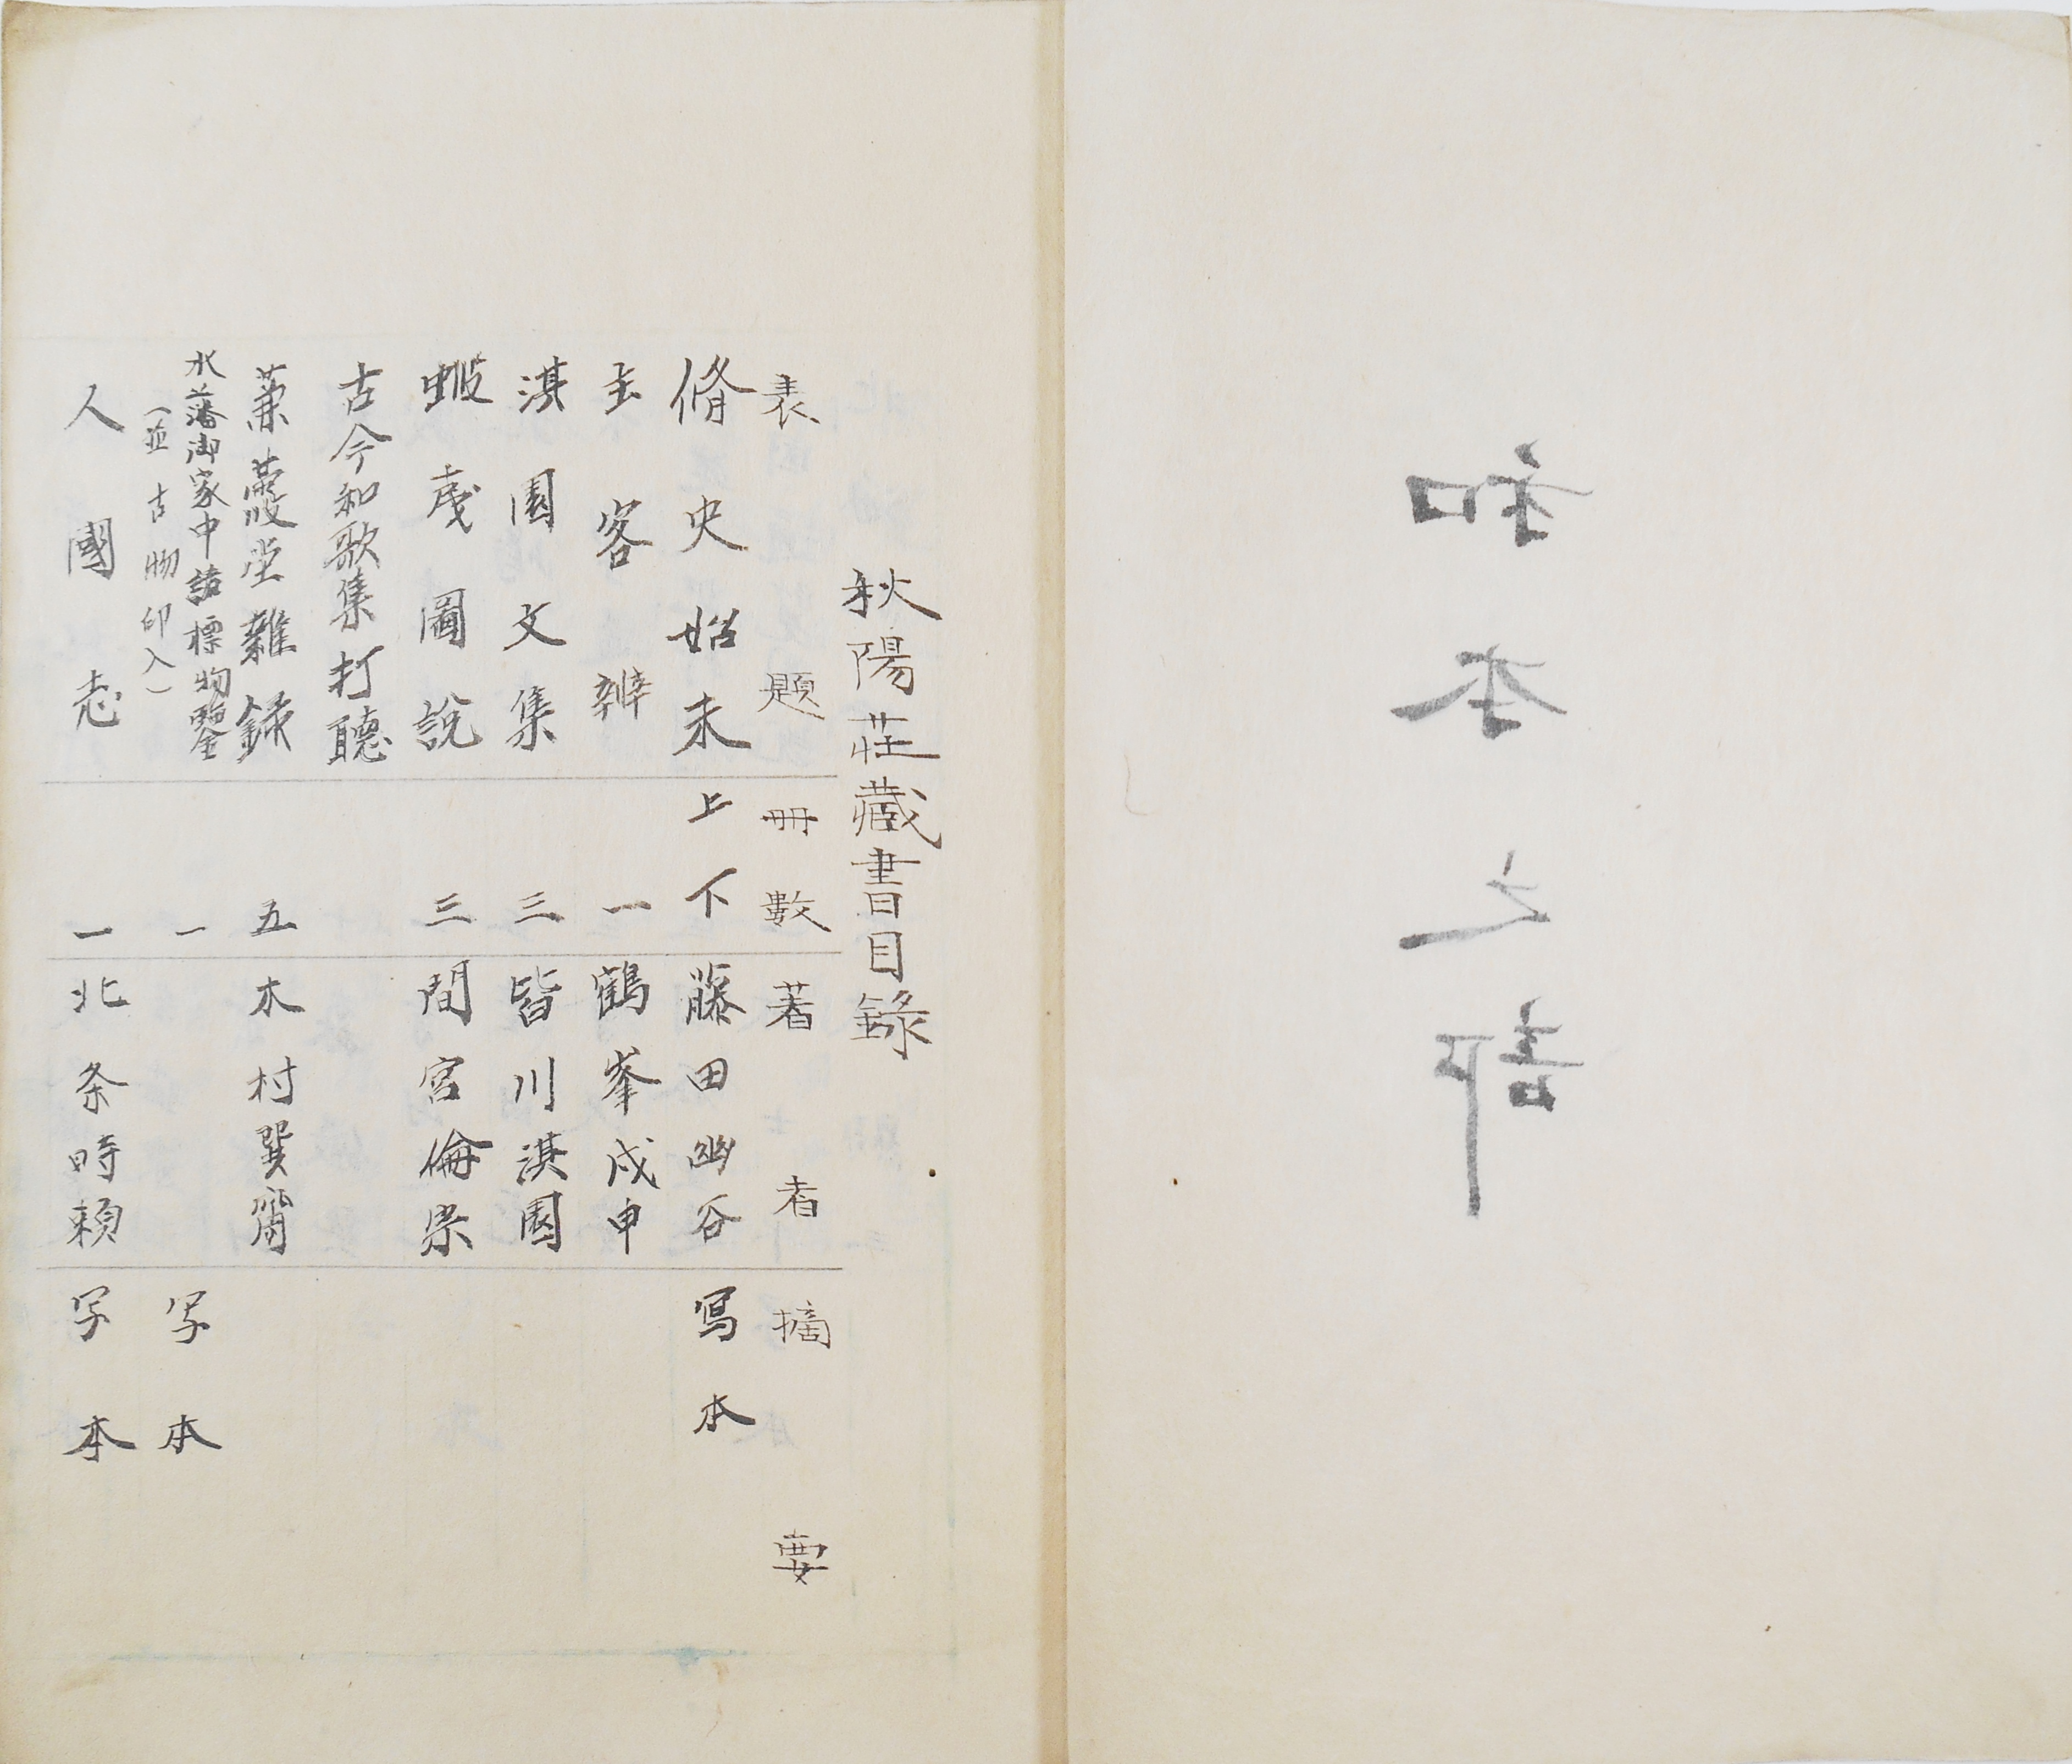 和本之部
秋陽莊藏書目錄
表題 冊數 著者 摘要
脩史始末 上下 藤田幽谷 寫本
主客辨 一 鶴峯戊申
淇園文集 三 皆川淇園
蝦夷圖說 三 間宮倫宗
古今和歌集打聽
蒹葭堂雜録 五 木村巽齋
水藩御家中諸標物鑒 一 写本
(並古物印入)
人國志 一 北条時頼 写本